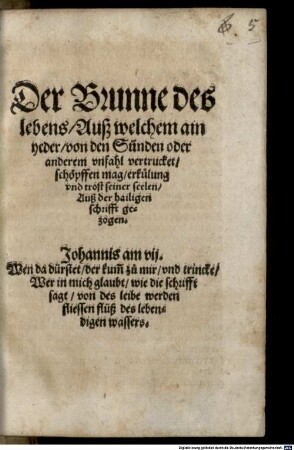 5
Der Brunne des
lebens/Auß welchem ain
yeder/von den Sünden oder
anderem vnfahl vertrucket/
schöpffen mag/erkülung
vnd trost seiner seelen/
Auß der hailigen
schrifft ge-
zogen.
Johannis am vij.
Wen da dürstet/der kum̃ zů mir/vnd trincke/
Wer in mich glaubt/wie die schrifft
sagt/von des leibe werden
fliessen flüß des leben-
digen wassers.